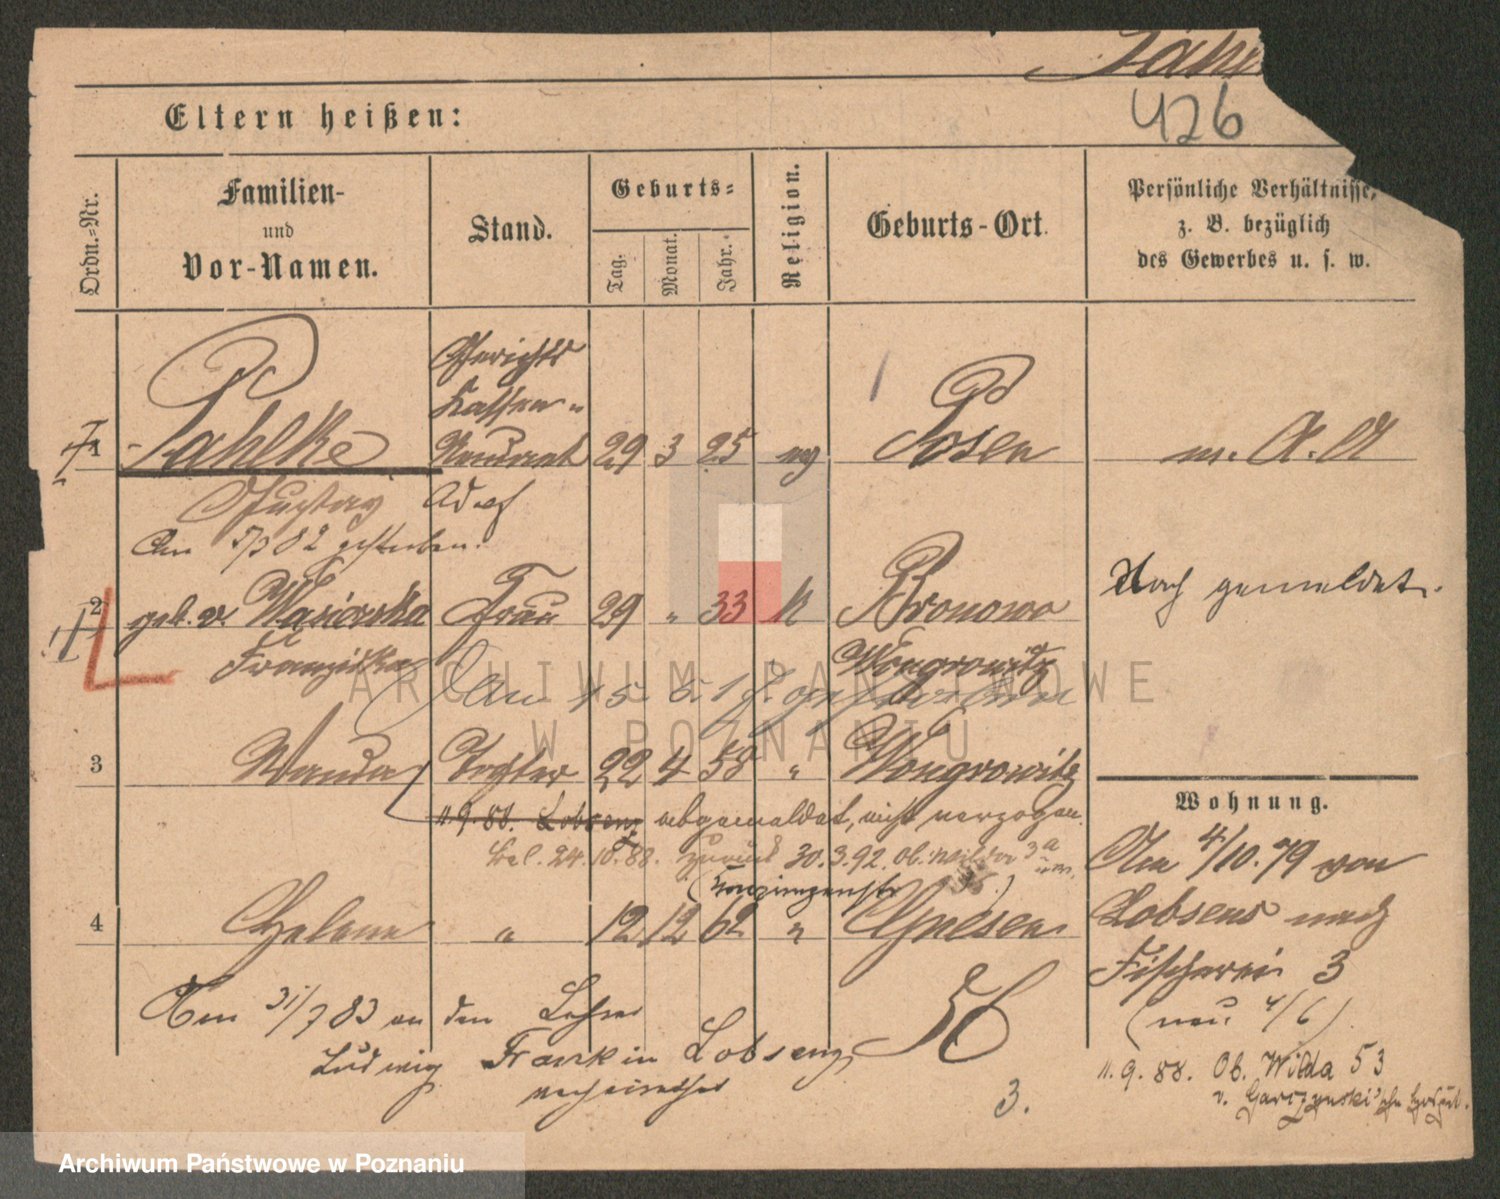 Pahl
426
Eltern heißen:
Ordn.-Nr.
Familien-
und
Vor-Namen.
Stand.
Geburts-
Tag.
Monat.
Jahr.
Religion.
Geburts-Ort.
Persönliche Verhältnisse,
z. B. bezüglich
des Gewerbes u. s. w.
1 Pahlke Gerichts Kassen- Rendant 29 3 25 Posen m. A. A
Gustav Adolf
Am 5/3 82 gestorben.
2 geb. v. Wąsicrska Frau 29 " 33 k Bronowo
Noch gemeldet.
Franziska Wongrowitz
Am 15. 6. gestorben
3 Wanda Tochter 22 4 58 " Wongrowitz
Wohnung.
11.9.88. Lobsens abgemeldet, nicht verzogen.
24.10.88. zurück 30.3.92. Ob. Wilda 3a
Am 4/10.79 von
4 Helene " 12 12 62 " Gnesen
Lobsens nach
Fischerei 3
(neu 4/6)
Am 31/7 83 an den Lehrer
56
Ludwig Frank in Lobsens
verheirathet
11.9.88. Ob. Wilda 53
3.
ARCHIWUM PAŃSTWOWE
W POZNANIU
Archiwum Państwowe w Poznaniu